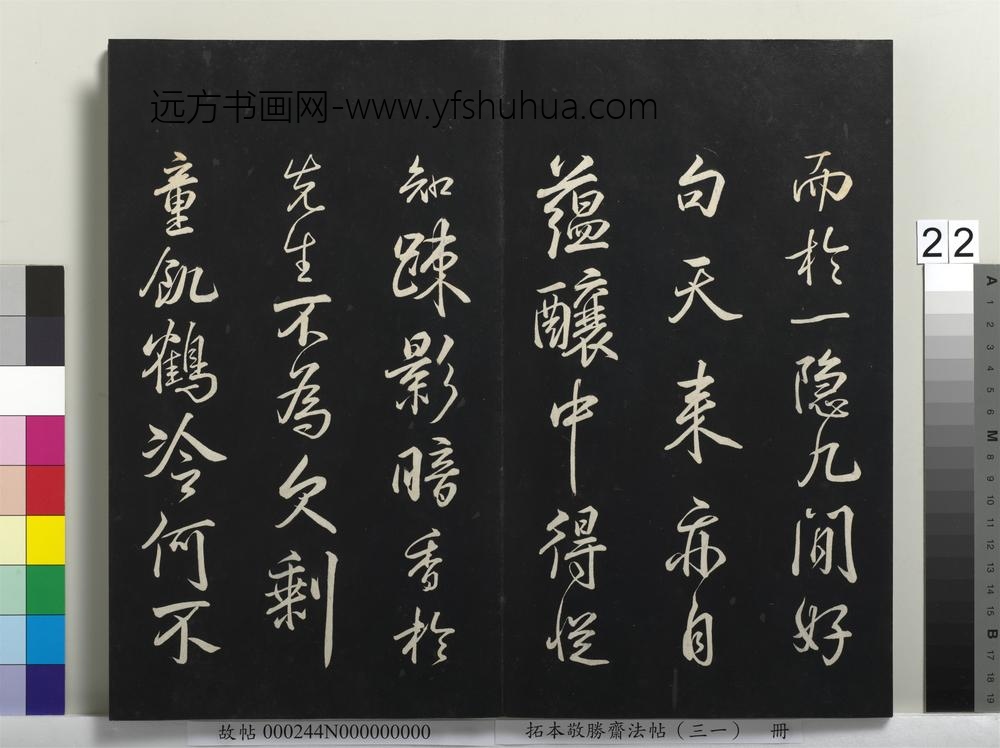 远方书画网-www.yfshuhua.com
而於一隐九閒好
句天来亦自
蕴釀中得従
知踈影暗香於
先生不為欠剩
童飢鶴冷何不
22
A
1
2
3
4
5
6
M
8
9
10
11
12
13
14
15
B
17
18
19
故帖 000244N000000000
拓本敬勝齋法帖（三一） 冊